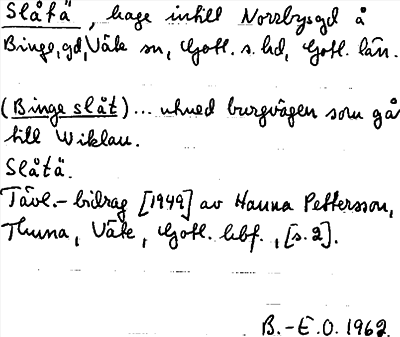 Slåtä, hage intill Norrbysgd å
Binge, gd, Väte sn, Gotl. s. hd, Gotl. län.
(Binge slåt)... uhued burgvägen som gå
till Wiklau.
Slåtä.
Tävl.-bidrag [1949] av Hanna Pettersson,
Thuna, Väte, Gotl. hbf., [s. 2].
B.-E.O. 1962.